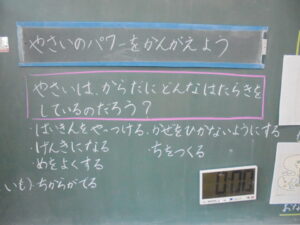 やさいのパワーをかんがえよう
やさいは、からだにどんなはたらきを
しているのだろう？
・ばいきんをやっつける・かぜをひかないようにする
・げんきになる ・ちをつくる
・めをよくする
いも)・ちからがでる